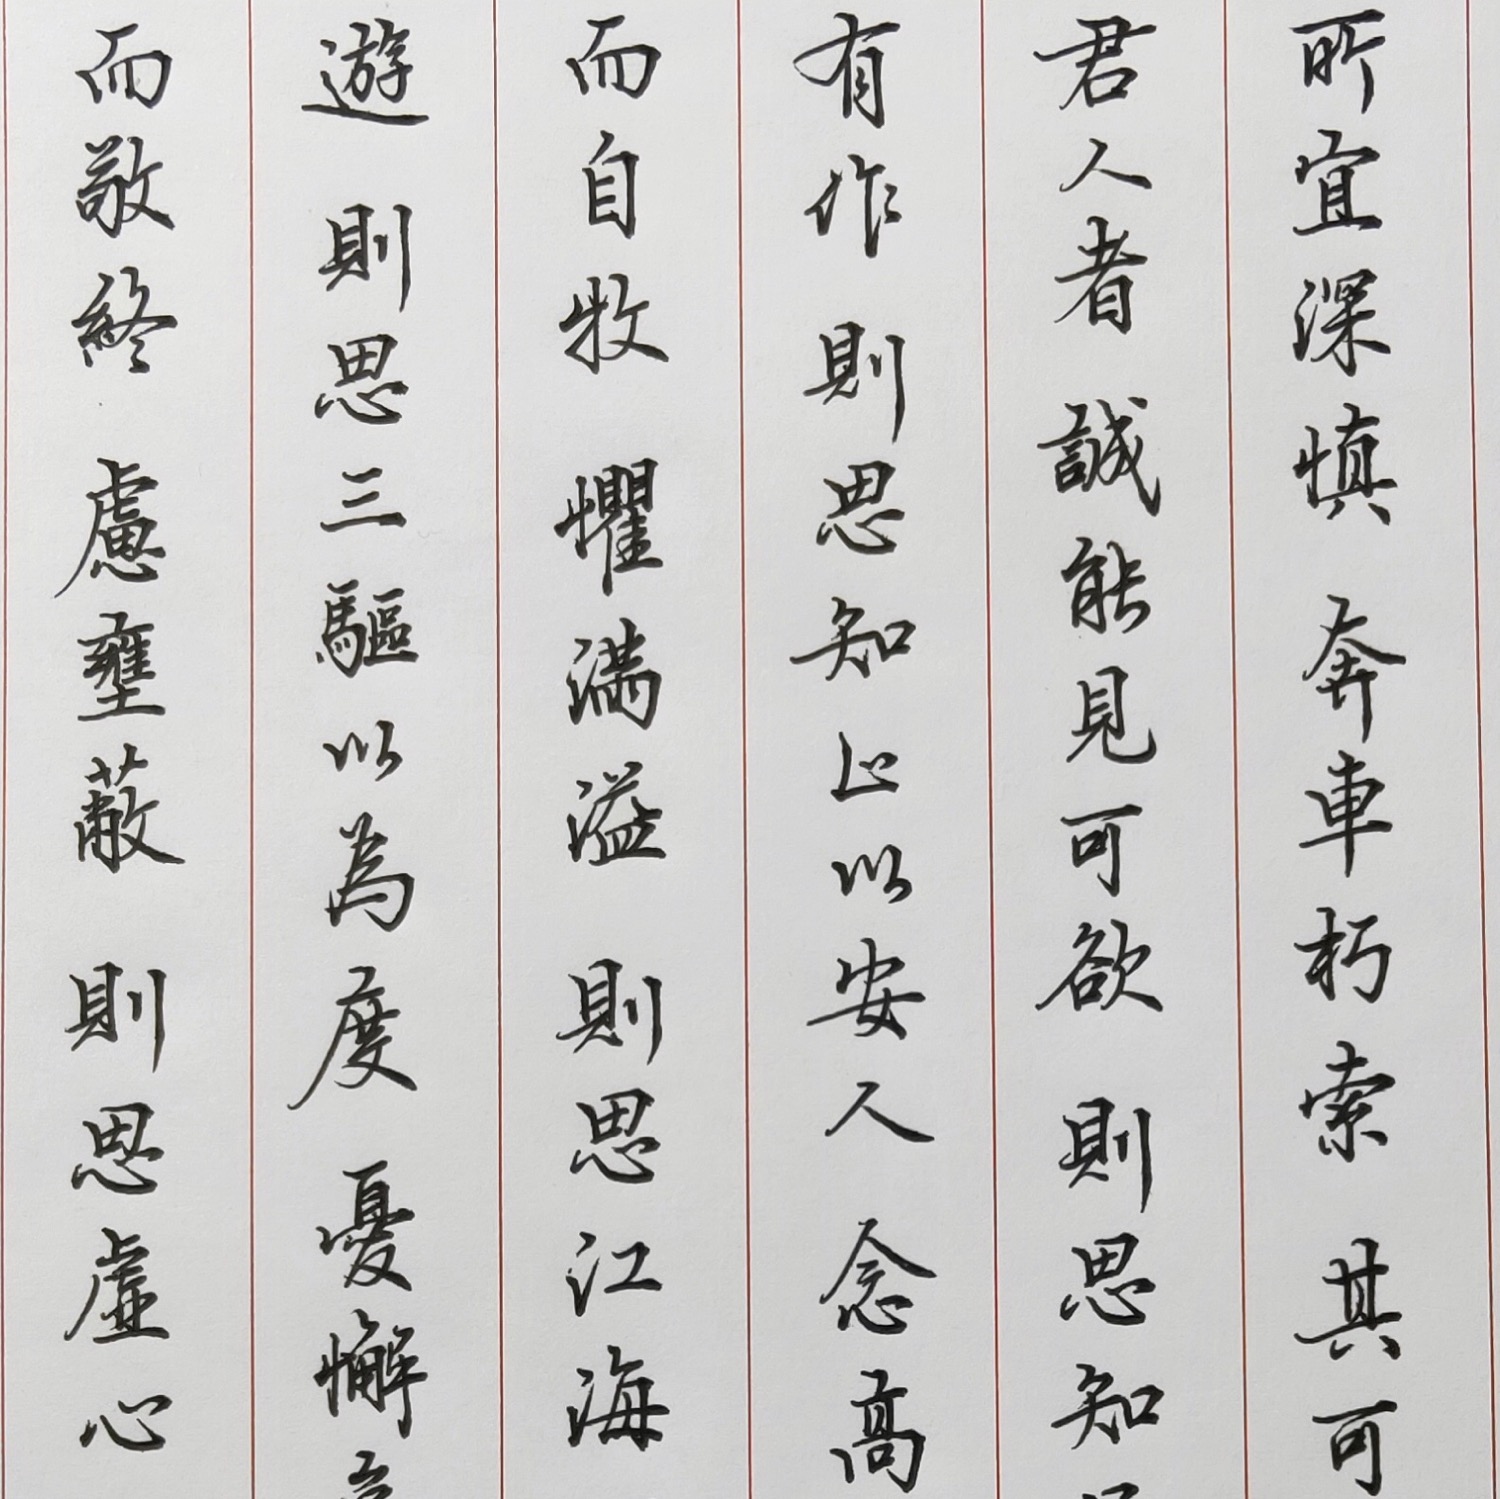 所宜深慎奔車朽索其可
君人者誠能見可欲則思知
有作則思知止以安人念高
而自牧懼滿溢則思江海
遊則思三驅以為度憂懈
而敬終慮壅蔽則思虛心